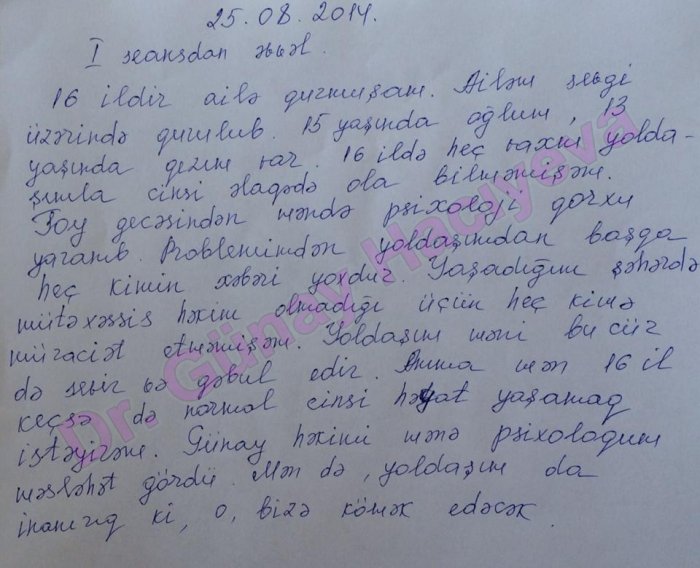 25.08.2014.
I seansdan əvvəl.
16 ildir ailə qurmuşam. Ailəm sevgi
üzərində qurulub. 15 yaşında oğlum, 13
yaşında qızım var. 16 ildə heç vaxt yolda-
şımla cinsi əlaqədə ola bilməmişəm.
Toy gecəsindən məndə psixoloji qorxu
yaranıb. Problemimdən yoldaşımdan başqa
heç kimin xəbəri yoxdur. Yaşadığım şəhərdə
mütəxəssis həkim olmadığı üçün heç kimə
müraciət etməmişəm. Yoldaşım məni bu cür
də sevir və qəbul edir. Amma mən 16 il
keçsə də normal cinsi həyat yaşamaq
istəyirəm. Günay həkimi mənə psixoloqum
məsləhət gördü. Mən də, yoldaşım da
inanırıq ki, o, bizə kömək edəcək.
Dr. Günay Hacıyeva